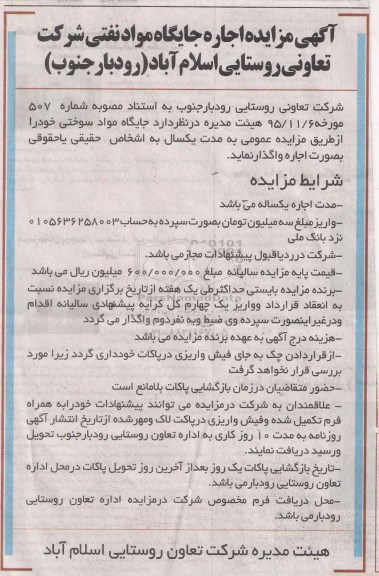 آگهی مزایده اجاره جایگاه مواد نفتی شرکت
تعاونی روستایی اسلام آباد (رودبار جنوب)
شرکت تعاونی روستایی رودبارجنوب به استناد مصوبه شماره ۵۰۷
مورخه ۹۵/۱۱/۶ هیئت مدیره درنظردارد جایگاه مواد سوختی خودرا
ازطریق مزایده عمومی به مدت یکسال به اشخاص حقیقی یاحقوقی
بصورت اجاره واگذارنماید.
شرایط مزایده
-مدت اجاره یکساله می باشد
-واریز مبلغ سه میلیون تومان بصورت سپرده به حساب ۰۱۰۵۶۳۶۲۵۸۰۰۳
نزد بانک ملی
-شرکت درردیاقبول پیشنهادات مجازمی باشد.
-قیمت پایه مزایده سالیانه مبلغ ۶۰۰/۰۰۰/۰۰۰ میلیون ریال می باشد
-برنده مزایده بایستی حداکثرطی یک هفته ازتاریخ برگزاری مزایده نسبت
به انعقاد قرارداد وواریز یک چهارم کل کرایه پیشنهادی سالیانه اقدام
ودرغیراینصورت سپرده وی ضبط وبه نفردوم واگذار می گردد
-هزینه درج آگهی به عهده برنده مزایده می باشد
-ازقراردادن چک به جای فیش واریزی درپاکات خودداری گردد زیرا مورد
بررسی قرار نخواهد گرفت
-حضور متقاضیان درزمان بازگشایی پاکات بلامانع است
- علاقمندان به شرکت درمزایده می توانند پیشنهادات خودرابه همراه
فرم تکمیل شده وفیش واریزی درپاکت لاک ومهرشده ازتاریخ انتشار آگهی
روزنامه به مدت ۱۰ روز کاری به اداره تعاون روستایی رودبارجنوب تحویل
ورسید دریافت نمایند.
-تاریخ بازگشایی پاکات یک روز بعداز آخرین روز تحویل پاکات درمحل اداره
تعاون روستایی رودبارمی باشد.
-محل دریافت فرم مخصوص شرکت درمزایده اداره تعاون روستایی
رودبارمی باشد.
هیئت مدیره شرکت تعاون روستایی اسلام آباد